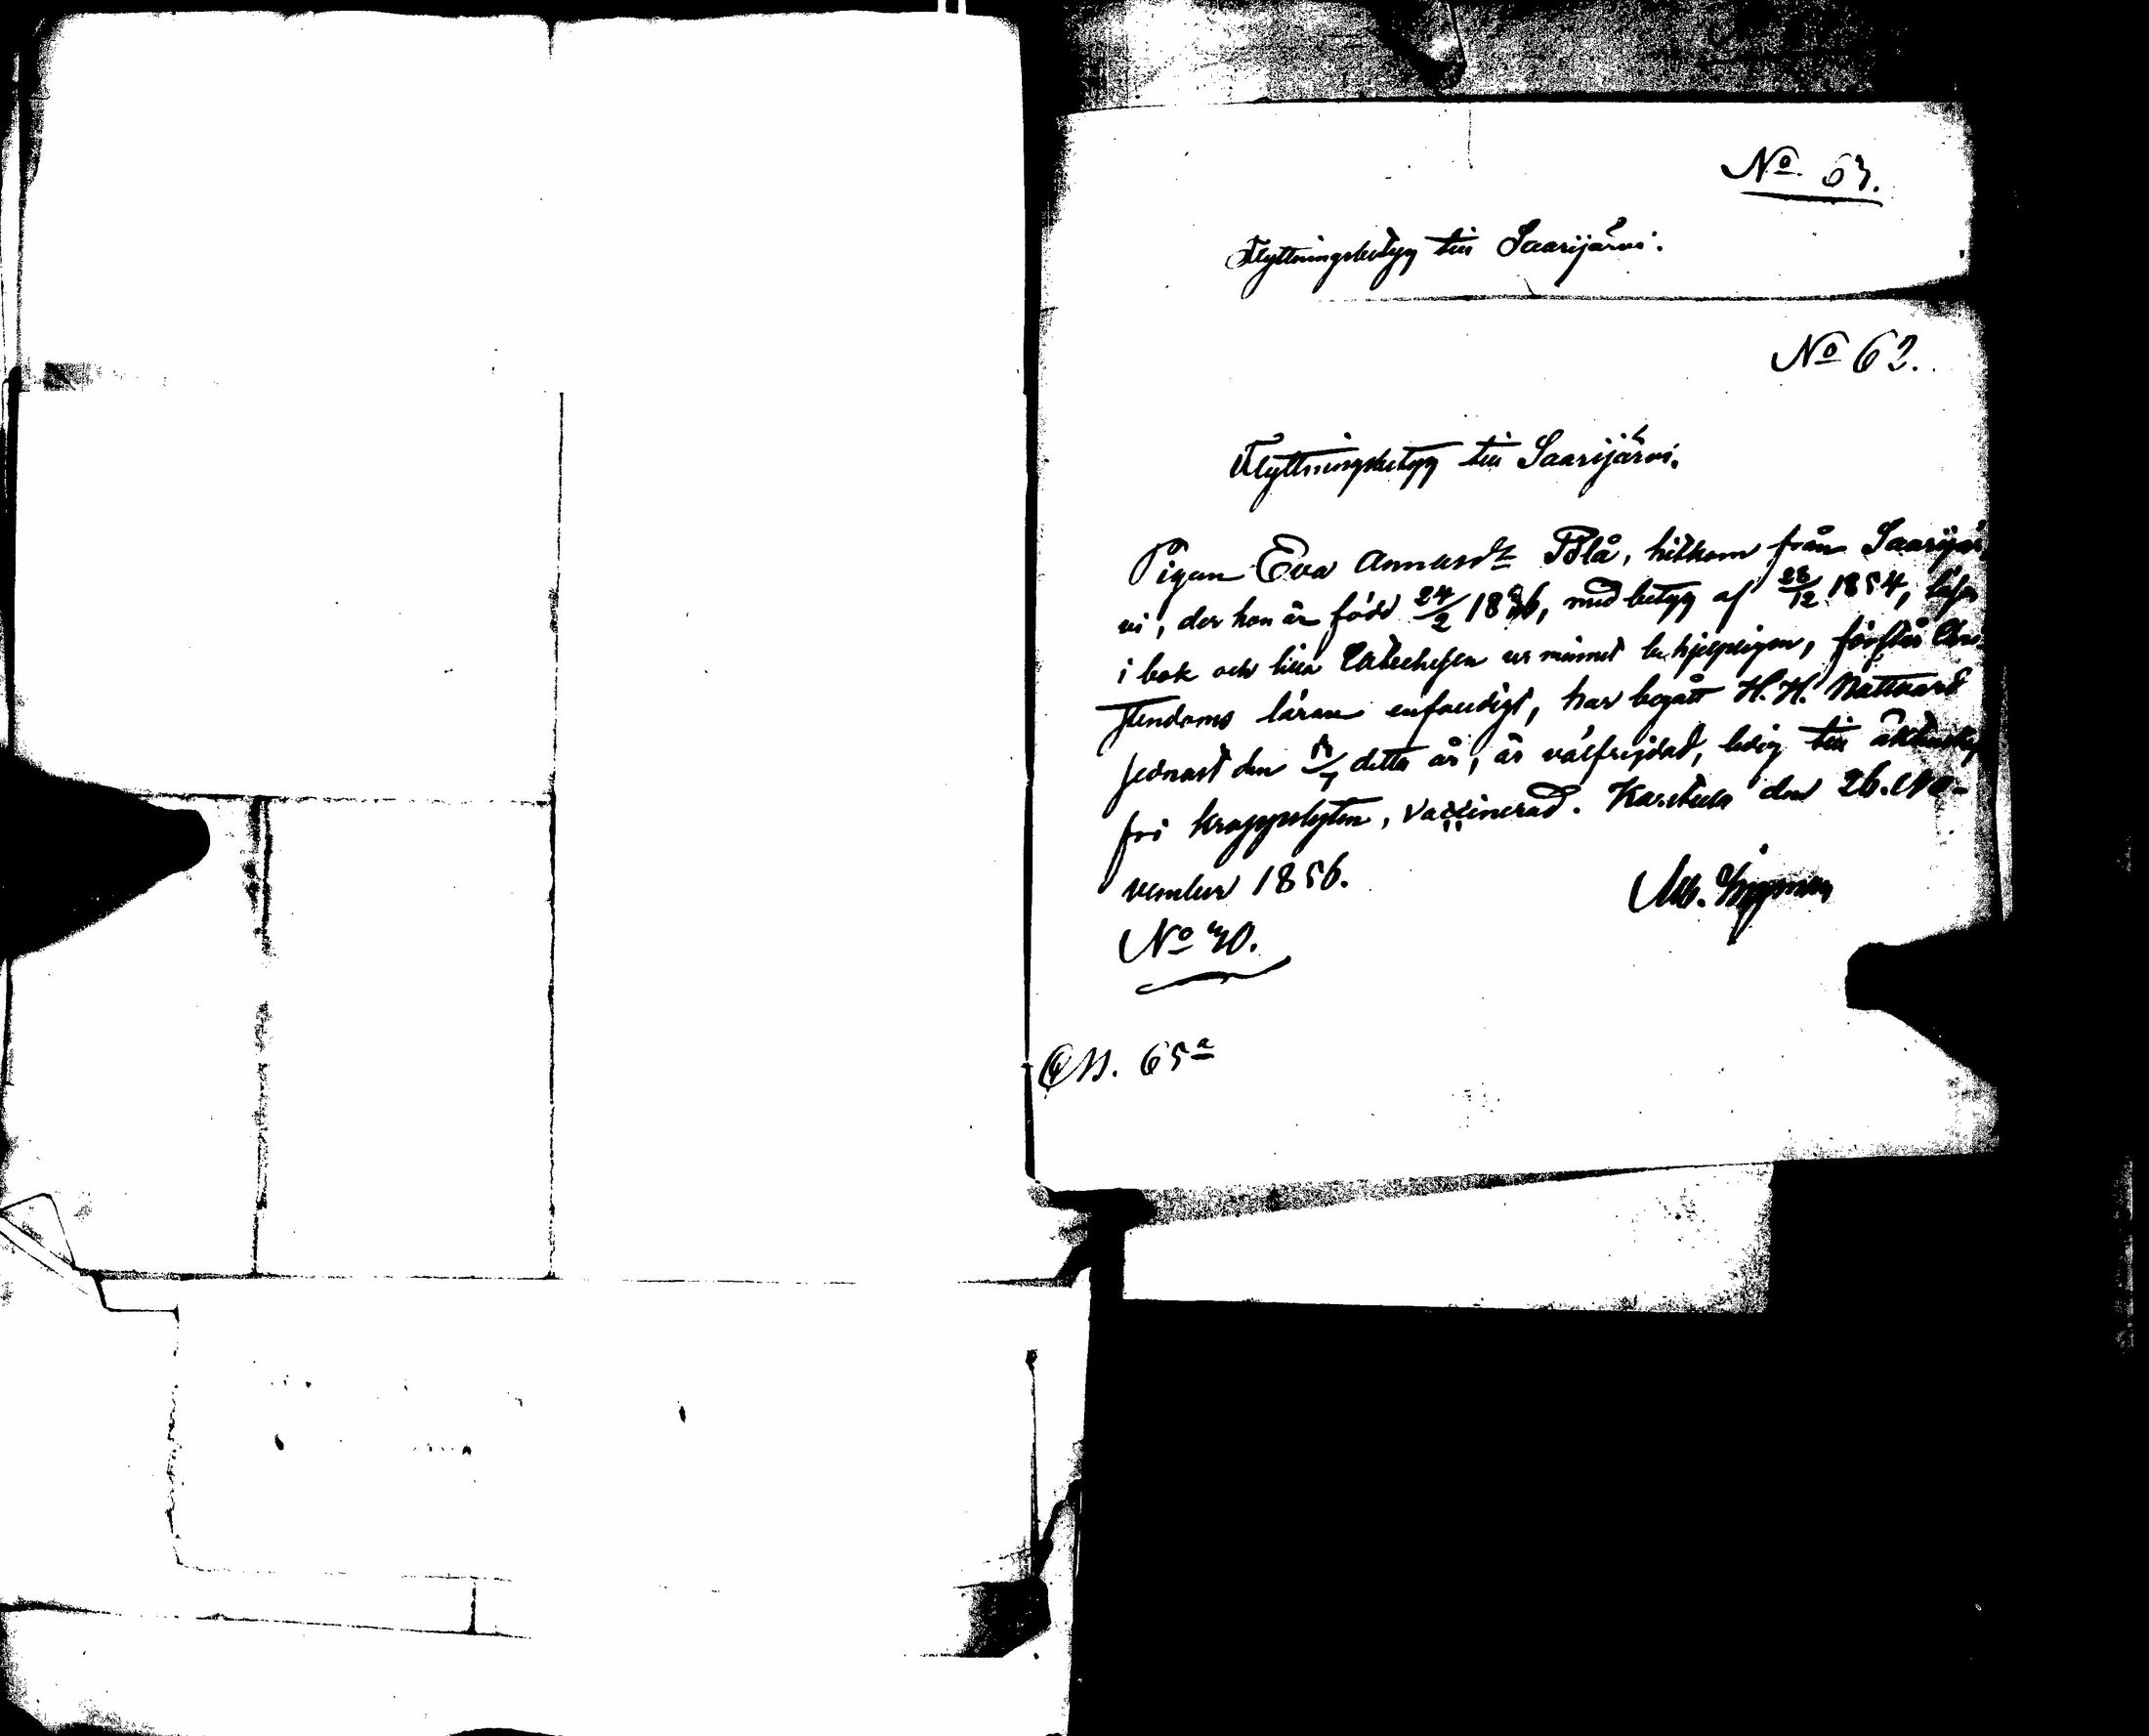 No. 63.
Flyttningsbetyg till Saarijärvi.
No 62.
Flyttningsbetyg till Saarijärvi.
Pigan Eva Annasdr Blå, hitkom från Saarijär
vi, der hon är född 24/2 1836, med betyg af 28/12 1854, läser
i bok och lilla Catechesen ur minnet behjelpligen, förstår Chri
stendoms läran enfaldigt, har begått H. H. Nattvard
sednast den detta år, är välfrejdad, ledig till äktenskap
fri kroppslyten, vaccinerad. Karstula den 26. No-
vember 1856.
No 40.
65a